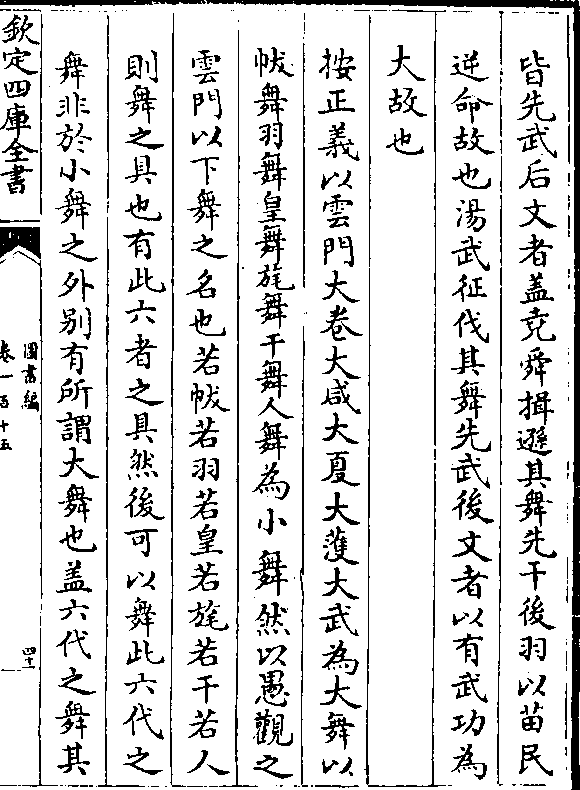 皆先武后文者盖尭舜揖遜其舞先干後羽以苗民
逆命故也湯武征伐其舞先武後文者以有武功為
大故也
按正義以雲門大卷大咸大夏大濩大武為大舞以
帗舞羽舞皇舞旄舞干舞人舞為小舞然以愚觀之
雲門以下舞之名也若帗若羽若皇若旄若干若人
則舞之具也有此六者之具然後可以舞此六代之
舞非於小舞之外別有所謂大舞也盖六代之舞其
欽定四庫全書
圖書編
卷一百十五
四十一